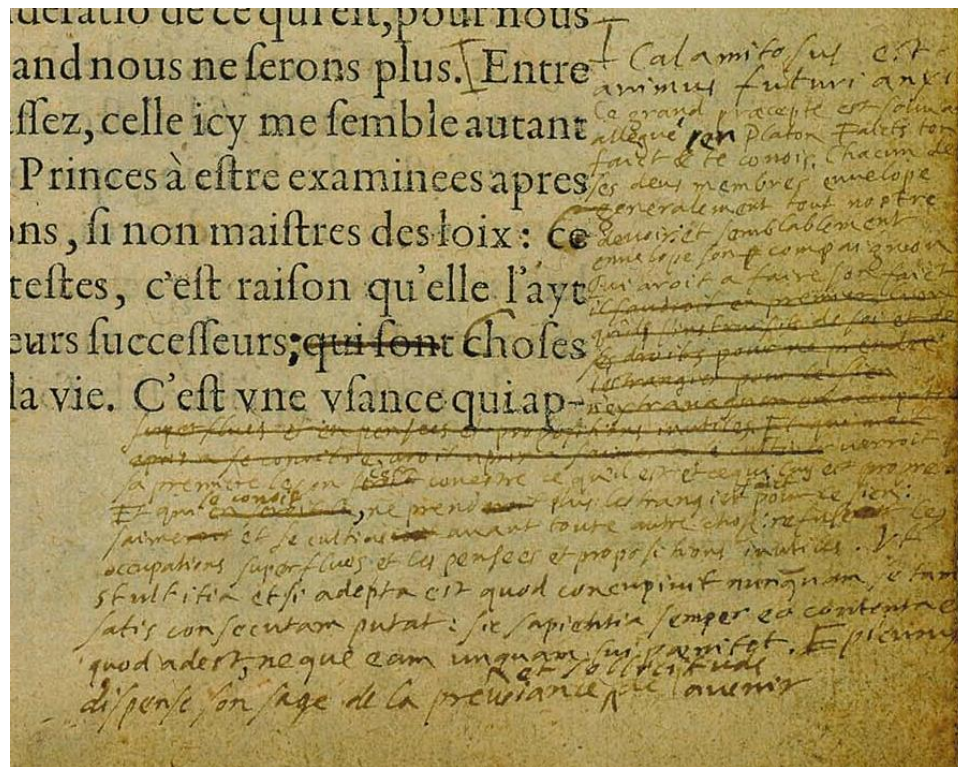 deratio de ce qui est, pour nous
and nous ne ſerons plus. Entre
ſſez, celle icy me ſemble autant
Princes à eſtre examinees apres
ons, ſi non maiſtres des loix: ce
teſtes, c'eſt raiſon qu'elle l'ayt
eurs ſucceſſeurs; qui ſont choſes
la vie. C'eſt vne vſance qui ap-
Calamitosus est
animus futuri anxi
Ce grand præcepte est souva
allegué en Platon Faicts ton
faict & te conois. Chacun de
ses deus membres envelope
generalement tout nostre
devoir: et semblablement
envelope son compaignon
Qui aroit a faire son faict
il en premier
de soi et de
pour ne prendre
lestrangier pour le sien
superflues et en pensees et propositions inutiles. Et qui
verroit
sa premiere leçon cest conestre ce qu'il est et ce qui luy est propre
Et qui se conoit, ne prend plus lestrangier faict pour le sien:
saime et se cultive avant toute autre chose: refuse les
occupations superflues et les pensees et propositions inutiles. Vt
stultitia etsi adepta est quod concupivit nunquam se tam
satis consecutam putat: sic sapientia semper eo contenta e
quod adest, neque eam unquam sui pœnitet. Epicurus
dispense son sage de la prevoiance et sollicitude de l'avenir